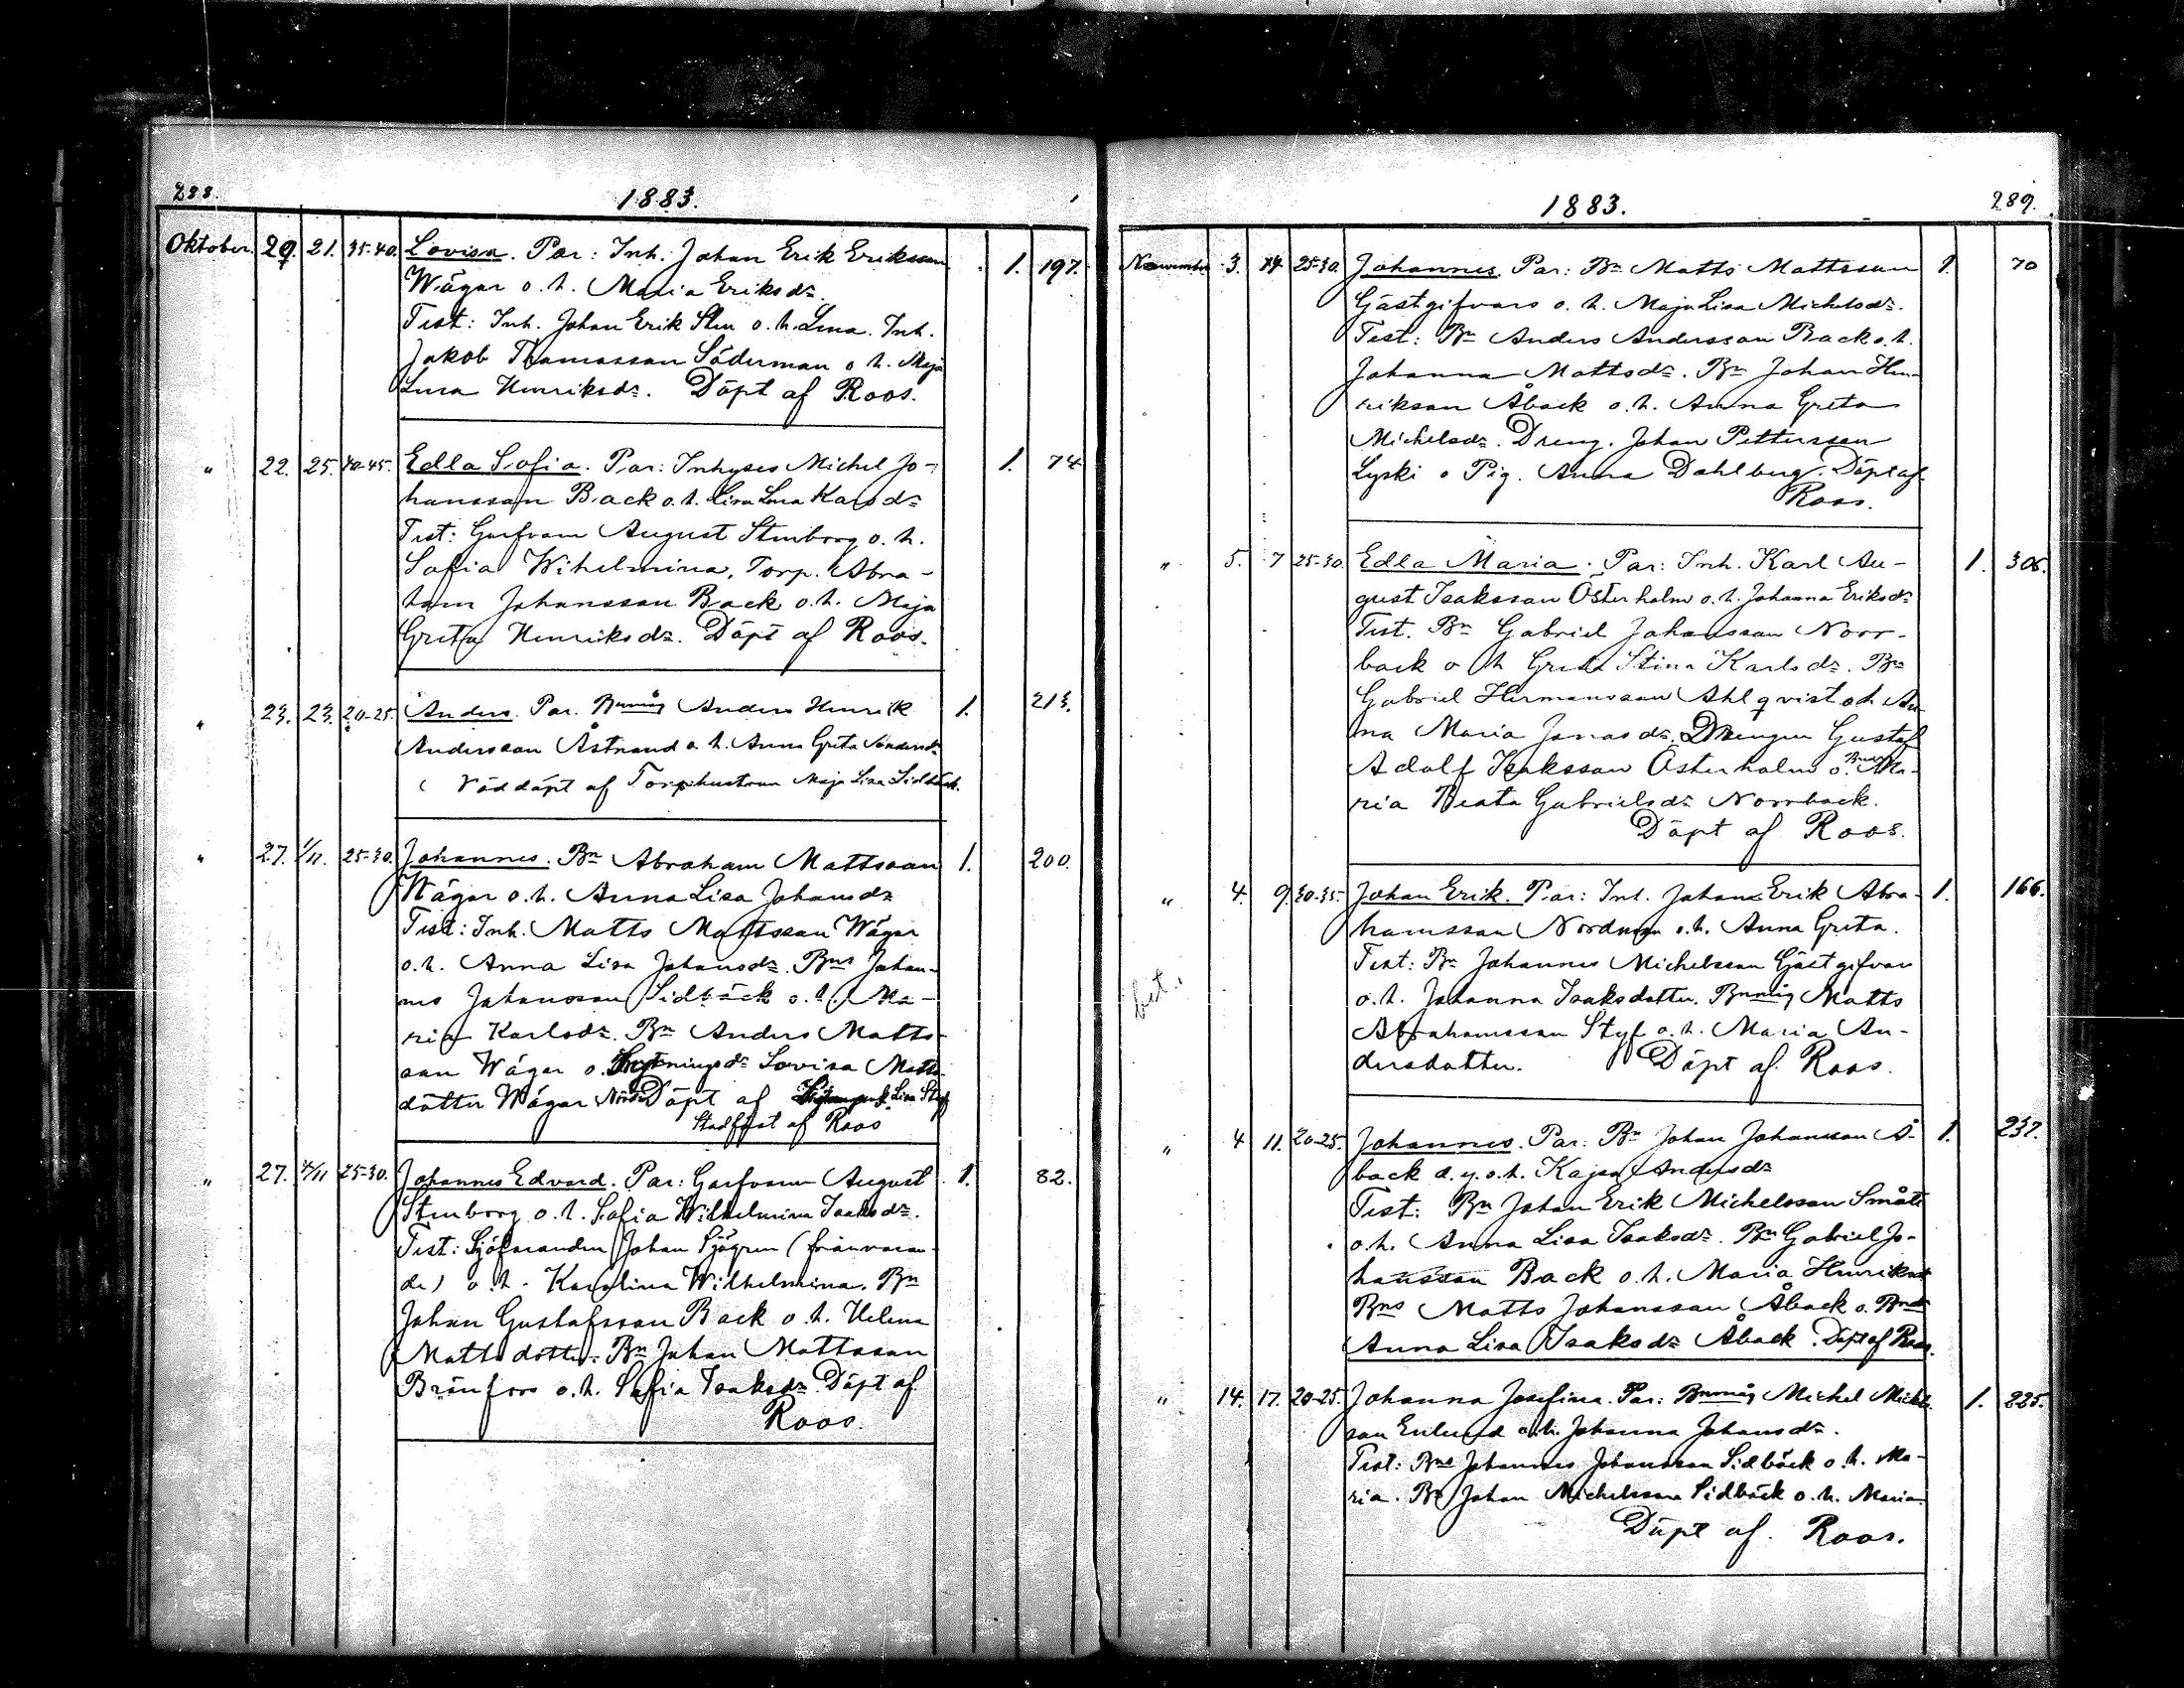 288.
1883.
Oktober. 29. 21. 35-40. Lovisa. Par: Inh. Johan Erik Eriksson 1. 197.
Wägar o. h. Maria Eriksdr.
Test: Inh. Johan Erik Sten o. h. Lena. Inh.
Jakob Thomasson Söderman o. h. Maja
Lena Henriksdr. Döpt af Roos.
" 22. 25. 40-45. Edla Sofia. Par: Inhyses Michel Jo- 1. 74
hansson Back o. h. Lisa Lena Karsdr
Test: Garfvam August Stenborg o. h.
Sofia Wihelmina, Torp. Abra-
ham Johansson Back o. h. Maja
Greta Henriksdr. Döpt af Roos.
" 23. 23. 20-25. Anders. Par. Bnmåg Anders Henrik 1. 213.
Andersson Åstrand o. h. Anna Greta Andersdr
Nöddöpt af Torpihustrun Maja Lisa Sidbäck.
" 27. 1/11. 25-30. Johannes. Bn Abraham Mattsson 1. 200.
Wägar o. h. Anna Lisa Johansdr
Test: Inh. Matts Mattsson Wägar
o. h. Anna Lisa Johansdr. Bns Johan-
nes Johansson Sidbäck o. h. Ma-
ria Karlsdr. Bn Anders Matts-
son Wägar o. Lovisa Matts-
dotter Wägar Döpt af Lisa Styf
Stadfäst af Roos
" 27. 4/11 25-30. Johannes Edvard. Par: Garfvaren August 1. 82.
Stenborg o. h. Sofia Wilhelmina Isaksdr.
Test: Sjöfaranden Johan Sjögren (frånvaran-
de) o. h. Karolina Wilhelmina. Bn
Johan Gustafsson Back o. h. Helena
Mattsdotter. Bn Johan Mattsson
Bränfors o. h. Sofia Isaksdr. Döpt af
Roos.
1883.
289.
November 3. 14. 25-30. Johannes. Par: Bn Matts Mattsson 1. 70
Gästgifvars o. h. Maja Lisa Michelsdr.
Test: Bn Anders Andersson Back o. h.
Johanna Mattsdr. Bn Johan Hen-
rikson Åback o. h. Anna Greta
Michelsdr. Dreng. Johan Pettersson
Lyski o Pig. Anna Dahlberg. Döpt af
Roos.
" 5. 7 25-30. Edla Maria. Par: Inh. Karl Au- 1. 306.
gust Isaksson Österholm o. h. Johanna Eriksdr
Test. Bn Gabriel Johansson Norr-
back o h Greta Stina Karlsdr. Bn
Gabriel Hermansson Ahlqvist o h An-
na Maria Jonasdr. Drengen Gustaf
Adolf Isaksson Österholm o. Ma-
ria Beata Gabrielsdr Norrback.
Döpt af Roos.
" 4. 9. 30-35. Johan Erik. Par: Inh. Johan Erik Abra- 1. 166.
hamsson Nordman o. h. Anna Greta.
Test: Bn Johannes Michelsson Gästgifvar
o. h. Johanna Isaksdotter. Bnmåg Matts
Abrahamsson Styf o. h. Maria An-
dersdotter. Döpt af Roos.
" 4 11. 20-25. Johannes. Par: Bn Johan Johansson Å- 1. 237.
back d. y. o. h. Kajsa Andersdr
Test: Bn Johan Erik Michelsson Småts
o. h. Anna Lisa Isaksdr. Bn Gabriel Jo-
hansson Back o. h. Maria Henriksdr
Bns Matts Johansson Åback o. Bndr
Anna Lisa Isaksdr Åback. Döpt af Roos.
" 14. 17. 20-25. Johanna Josefina. Par: Bnmåg Michel Michels- 1. 225.
son Enlund o. h. Johanna Johansdr.
Test: Bns Johannes Johansson Sidbäck o. h. Ma-
ria. Bn Johan Michelsson Sidbäck o. h. Maria
Döpt af Roos.